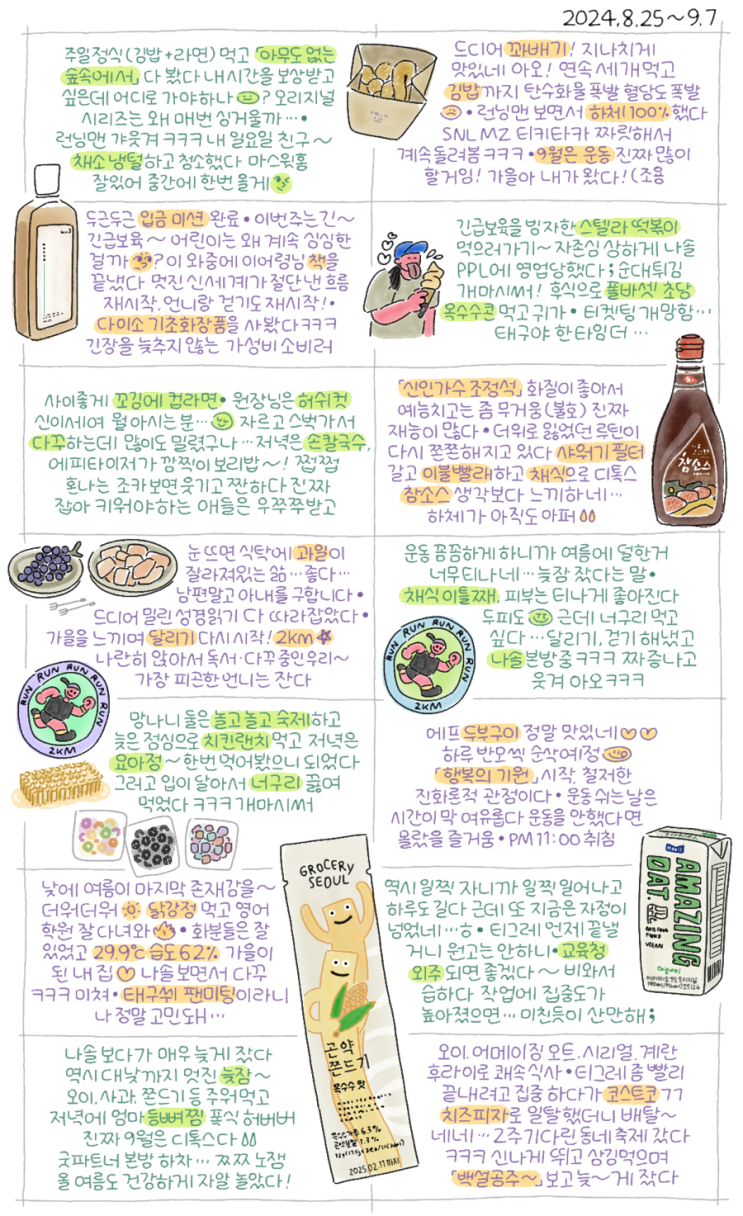 2024.8.25~9.7
주일정식(김밥+라면) 먹고 「아무도 없는
숲속에서」 다 봤다 내 시간을 보상받고
싶은데 어디로 가야하나 ? 오리지널
시리즈는 왜 매번 싱거울까 … •
런닝맨 갸웃겨 ㅋㅋㅋ 내 일요일 친구 ~
채소 냉털하고 청소했다 마스 윗홈
잘있어 중간에 한번 올게
드디어 꽈배기! 지나치게
맛있네 아오! 연속 세개 먹고
김밥까지 탄수화물 폭발 혈당도 폭발
• 런닝맨 보면서 하체 100% 했다
SNL MZ 티키타카 짜릿해서
계속 돌려봄 ㅋㅋㅋ • 9월은 운동 진짜 많이
할거임! 가을아 내가 왔다! (조용
두근두근 입금 미션 완료 • 이번주는 긴~
긴급보육 ~ 어린이는 왜 계속 심심한
걸까 ? 이 와중에 이어령님 책을
끝냈다 멋진 신세계가 절단 낸 흐름
재시작. 언니랑 걷기도 재시작! •
다이소 기초화장품을 사봤다 ㅋㅋㅋ
긴장을 늦추지 않는 가성비 소비러
긴급보육을 빙자한 스텔라 떡볶이
먹으러가기~ 자존심 상하게 나솔
PPL에 영업당했다 ; 순대튀김
개마시써! 후식으로 폴바셋 초당
옥수수콘 먹고 귀가 • 티켓팅 개망함…
태구야 한 타임 더 …
사이좋게 꼬김에 컵라면 • 원장님은 허쉬컷
신이세여 뭘 아시는 분 … 자르고 스벅가서
다꾸하는데 많이도 밀렸구나 … 저녁은 손칼국수.
에피타이저가 깜찍이 보리밥~! 쩝쩝
혼나는 조카보면 웃기고 짠하다 진짜
잡아 키워야 하는 애들은 우쭈쭈받고
「신인가수 조정석」 화질이 좋아서
예능치고는 좀 무거움 (불호) 진짜
재능이 많다 • 더위로 잃었던 루틴이
다시 쫀쫀해지고 있다 샤워기 필터
갈고 이불빨래하고 채식으로 디톡스
참소스 생각보다 느끼하네 …
하체가 아직도 아퍼
참소스
눈 뜨면 식탁에 과일이
잘라져있는 삶 … 좋다 …
남편말고 아내를 구합니다 •
드디어 밀린 성경읽기 다 따라잡았다 •
가을을 느끼며 달리기 다시 시작! 2km
나란히 앉아서 독서 · 다꾸 중인 우리~
가장 피곤한 언니는 잔다
운동 꼼꼼하게 하니까 여름에 덜한거
너무 티나네 … 늦잠 잤다는 말 •
채식 이틀째. 피부는 티나게 좋아진다
두피도 근데 너구리 먹고
싶다 … 달리기, 걷기 해냈고
나솔 본방 중 ㅋㅋㅋ 짜증나고
웃겨 아오 ㅋㅋㅋ
RUN RUN RUN RUN RUN
2KM
RUN RUN RUN RUN RUN
2KM
망나니 둘은 놀고 놀고 숙제하고
늦은 점심으로 치킨랜치 먹고 저녁은
요아정 ~ 한번 먹어봤으니 되었다
그러고 입이 달아서 너구리 끓여
먹었다 ㅋㅋㅋ 개마시써
에프 두부구이 정말 맛있네
하루 반모씩 순삭예정
「행복의 기원」 시작. 철저한
진화론적 관점이다 • 운동 쉬는날은
시간이 막 여유롭다 운동을 안했다면
몰랐을 즐거움 • PM 11:00 취침
낮에 여름이 마지막 존재감을 ~
더워더워 닭강정 먹고 영어
학원 잘 다녀와 • 화분들은 잘
있었고 29.9℃ 습도 62% 가을이
된 내 집 나솔 보면서 다꾸
ㅋㅋㅋ 미쳐 • 태구씨 팬미팅이라니
나 정말 고민돼 …
GROCERY
SEOUL
곤약
쫀드기
옥수수 맛
2025.02.11까지
역시 일찍 자니까 일찍 일어나고
하루도 길다 근데 또 지금은 자정이
넘었네 … ㅎ • 티그레 언제 끝낼
거니 원고는 안하니 • 교육청
외주 되면 좋겠다 ~ 비와서
습하다 작업에 집중도가
높아졌으면 … 미친듯이 산만해 ;
AMAZING
OAT.
VEGAN
나솔 보다가 매우 늦게 잤다
역시 대낮까지 멋진 늦잠 ~
오이. 사과. 쫀드기 등 주워먹고
저녁에 엄마 등뼈찜 폭식 허버버
진짜 9월은 디톡스다
굿파트너 본방 하차 … 쯔쯔 노잼
올 여름도 건강하게 자알 놀았다!
오이. 어메이징 오트. 시리얼. 계란
후라이로 쾌속식사 • 티그레 좀 빨리
끝내려고 집중 하다가 코스트코 ㄱㄱ
치즈피자로 일탈했더니 배탈~
네네 … 2주 기다린 동네 축제 갔다
ㅋㅋㅋ 신나게 뛰고 삼김먹으며
「백설공주~」 보고 늦~게 잤다